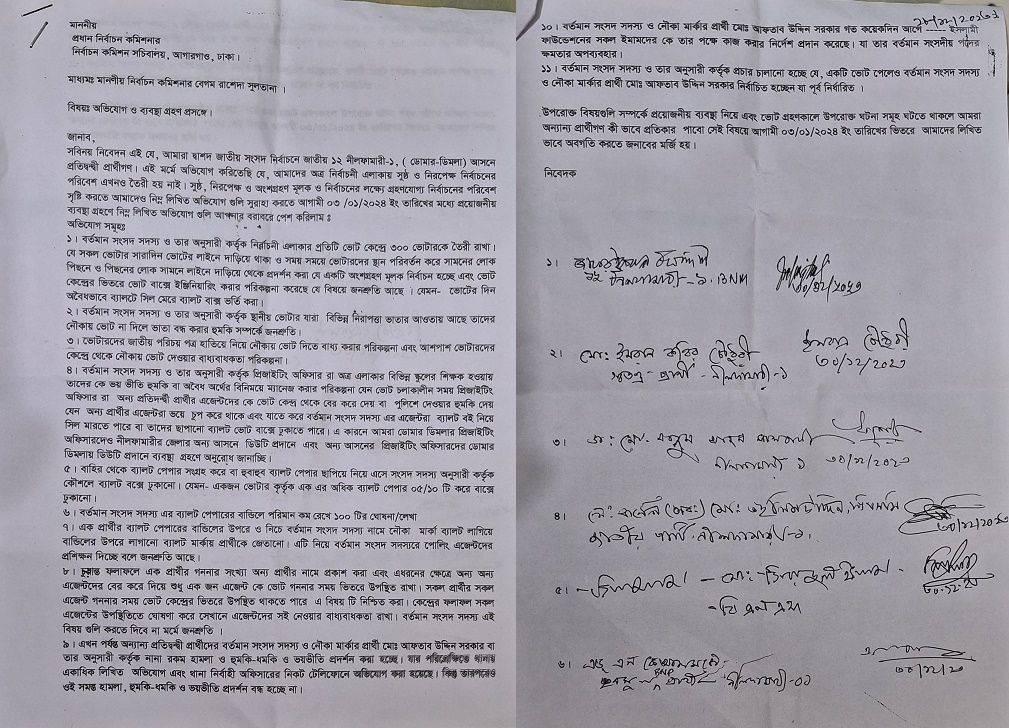 মাননীয়
প্রধান নির্বাচন কমিশনার
নির্বাচন কমিশন সচিবালয়, আগারগাও, ঢাকা।
মাধ্যমঃ মাননীয় নির্বাচন কমিশনার বেগম রাশেদা সুলতানা ।
বিষয়ঃ অভিযোগ ও ব্যবস্থা গ্রহণ প্রসঙ্গে।
জানাব,
সবিনয় নিবেদন এই যে, আমারা দ্বাদশ জাতীয় সংসদ নির্বাচনে জাতীয় ১২ নীলফামারী-১, ( ডোমার-ডিমলা) আসনে
প্রতিদ্বন্দ্বী প্রার্থীগণ। এই মর্মে অভিযোগ করিতেছি যে, আমাদের অত্র নির্বাচনী এলাকায় সুষ্ঠ ও নিরপেক্ষ নির্বাচনের
পরিবেশ এখনও তৈরী হয় নাই। সুষ্ঠ, নিরপেক্ষ ও অংশগ্রহণ মূলক ও নির্বাচনের লক্ষ্যে গ্রহণযোগ্য নির্বাচনের পরিবেশ
সৃষ্টি করতে আমাদেও নিম্ন লিখিত অভিযোগ গুলি সুরাহা করতে আগামী ০৩ /০১/২০২৪ ইং তারিখের মধ্যে প্রয়োজনীয়
ব্যবস্থা গ্রহণে নিম্ন লিখিত অভিযোগ গুলি আপনার বরাবরে পেশ করিলাম ঃ
অভিযোগ সমূহঃ
১। বর্তমান সংসদ সদস্য ও তার অনুসারী কর্তৃক নির্বাচিনী এলাকার প্রতিটি ভোট কেন্দ্রে ৩০০ ভোটারকে তৈরী রাখা।
যে সকল ভোটার সারাদিন ভোটের লাইনে দাড়িয়ে থাকা ও সময় সময়ে ভোটারদের স্থান পরিবর্তন করে সামনের লোক
পিছনে ও পিছনের লোক সামনে লাইনে দাড়িয়ে থেকে প্রদর্শন করা যে একটি অংশগ্রহণ মূলক নির্বাচন হচ্ছে এবং ভোট
কেন্দ্রের ভিতরে ভোট বাক্সে ইঞ্জিনিয়ারিং করার পরিকল্পনা করেছে যে বিষয়ে জনশ্রুতি আছে । যেমন- ভোটের দিন
অবৈধভাবে ব্যালটে সিল মেরে ব্যালট বাক্স ভর্তি করা।
২। বর্তমান সংসদ সদস্য ও তার অনুসারী কর্তৃক স্থানীয় ভোটার যারা বিভিন্ন নিরাপত্তা ভাতার আওতায় আছে তাদের
নৌকায় ভোট না দিলে ভাতা বন্ধ করার হুমকি সম্পর্কে জনশ্রুতি।
৩। ভোটারদের জাতীয় পরিচয় পত্র হাতিয়ে নিয়ে নৌকায় ভোট দিতে বাধ্য করার পরিকল্পনা এবং আশপাশ ভোটারদের
কেন্দ্রে থেকে নৌকায় ভোট দেওয়ার বাধ্যবাধকতা পরিকল্পনা।
৪। বর্তমান সংসদ সদস্য ও তার অনুসারী কর্তৃক প্রিজাইটিং অফিসার রা অত্র এলাকার বিভিন্ন স্কুলের শিক্ষক হওয়ায়
তাদের কে ভয় ভীতি হুমকি বা অবৈধ অর্থের বিনিময়ে ম্যানেজ করার পরিকল্পনা যেন ভোট চলাকালীন সময় প্রিজাইটিং
অফিসার রা অন্য প্রতিদ্বন্দ্বী প্রার্থী এজেন্টদের কে ভোট কেন্দ্র থেকে বের করে দেয় বা পুলিশে দেওয়ার হুমকি দেয়
যেন অন্য প্রার্থীর এজেন্টরা ভয়ে চুপ করে থাকে এবং যাতে করে বর্তমান সংসদ সদস্য এর এজেন্টরা ব্যালট বই নিয়ে
সিল মারতে পারে বা তাদের ছাপানো ব্যালট ভোট বাক্সে ঢুকাতে পারে। এ কারনে আমরা ডোমার ডিমলার প্রিজাইটিং
অফিসারদেও নীলফামারীর জেলার অন্য আসনে ডিউটি প্রদানে এবং অন্য আসনের প্রিজাইটিং অফিসারদের ডোমার
ডিমলায় ডিউটি প্রদানে ব্যবস্থা গ্রহণে অনুরোধ জানাচ্ছি।
৫। বাহির থেকে ব্যালট পেপার সংগ্রহ করে বা হুবাহুব ব্যালট পেপার ছাপিয়ে নিয়ে এসে সংসদ সদস্য অনুসারী কর্তৃক
কৌশলে ব্যালট বক্সে ঢুকানো। যেমন- একজন ভোটার কর্তৃক এক এর অধিক ব্যালট পেপার ০৫/১০ টি করে বাক্সে
ঢুকানো।
৬। বর্তমান সংসদ সদস্য এর ব্যালট পেপারের বান্ডিলে পরিমান কম রেখে ১০০ টির ঘোষনা/লেখা
৭। এক প্রার্থীর ব্যালট পেপারের বান্ডিলের উপরে ও নিচে বর্তমান সংসদ সদস্য নামে নৌকা মার্কা ব্যালট লাগিয়ে
বান্ডিলের উপরে লাগানো ব্যালট মার্কায় প্রার্থীকে জেতানো। এটি নিয়ে বর্তমান সংসদ সদস্যরে পোলিং এজেন্টদের
প্রশিক্ষন দিচ্ছে বলে জনশ্রুতি আছে।
৮। চুড়ান্ত ফলাফলে এক প্রার্থীর গননার সংখ্যা অন্য প্রার্থীর নামে প্রকাশ করা এবং এধরনের ক্ষেত্রে অন্য অন্য
এজেন্টদের বের করে দিয়ে শুধু এক জন এজেন্ট কে ভোট গননার সময় ভিতরে উপস্থিত রাখা। সকল প্রার্থীর সকল
এজেন্ট গননার সময় ভোট কেন্দ্রের ভিতরে উপস্থিত থাকতে পারে এ বিষয় টি নিশ্চিত করা। কেন্দ্রের ফলাফল সকল
এজেন্টের উপস্থিতিতে ঘোষণা করে সেখানে এজেন্টদের সই নেওয়ার বাধ্যবাধকতা রাখা। বর্তমান সংসদ সদস্য এই
বিষয় গুলি করতে দিবে না মর্মে জনশ্রুতি ।
৯। এখন পর্যন্ত অন্যান্য প্রতিদ্বন্দ্বী প্রার্থীদের বর্তমান সংসদ সদস্য ও নৌকা মার্কার প্রার্থী মোঃ আফতাব উদ্দিন সরকার বা
তার অনুসারী কর্তৃক নানা রকম হামলা ও হুমকি-ধমকি ও ভয়ভীতি প্রদর্শন করা হচ্ছে। যার পরিপ্রেক্ষিতে থানায়
একাধিক লিখিত অভিযোগ এবং থানা নির্বাহী অফিসারের নিকট টেলিফোনে অভিযোগ করা হয়েছে। কিন্তু তারপরেও
ওই সমস্ত হামলা, হুমকি-ধমকি ও ভয়ভীতি প্রদর্শন বন্ধ হচ্ছে না।
১০। বর্তমান সংসদ সদস্য ও নৌকা মার্কার প্রার্থী মোঃ আফতাব উদ্দিন সরকার গত কয়েকদিন আগে ইসলামী
ফাউন্ডেশনের সকল ইমামদের কে তার পক্ষে কাজ করার নির্দেশ প্রদান করেছে। যা তার বর্তমান সংসদীয় পদের
ক্ষমতার অপব্যবহার।
১১। বর্তমান সংসদ সদস্য ও তার অনুসারী কর্তৃক প্রচার চালানো হচ্ছে যে, একটি ভোট পেলেও বর্তমান সংসদ সদস্য
ও নৌকা মার্কার প্রার্থী মোঃ আফতাব উদ্দিন সরকার নির্বাচিত হচ্ছেন যা পূর্ব নির্ধারিত ।
উপরোক্ত বিষয়গুলি সম্পর্কে প্রয়োজনীয় ব্যবস্থা নিয়ে এবং ভোট গ্রহণকালে উপরোক্ত ঘটনা সমূহ ঘটতে থাকলে আমরা
অন্যান্য প্রার্থীগণ কী ভাবে প্রতিকার পাবো সেই বিষয়ে আগামী ০৩/০১/২০২৪ ইং তারিখের ভিতরে আমাদের লিখিত
ভাবে অবগতি করতে জনাবের মর্জি হয়।
নিবেদক
১।
নীলফামারী-১. BNM
২। মো: ইমরান কবির চৌধুরী
ইমরান চৌধুরী
স্বতন্ত্র প্রার্থী - নীলফামারী-১
৩০/১২/২০২৩
৩। ডা: মো:
নীলফামারী ১ ৩০/১২/২০২৩
৪।
জাতীয় পার্টি, নীলফামারী-১.
৫।
৬।
নীলফামারী-০১
৩০/১২/২৩